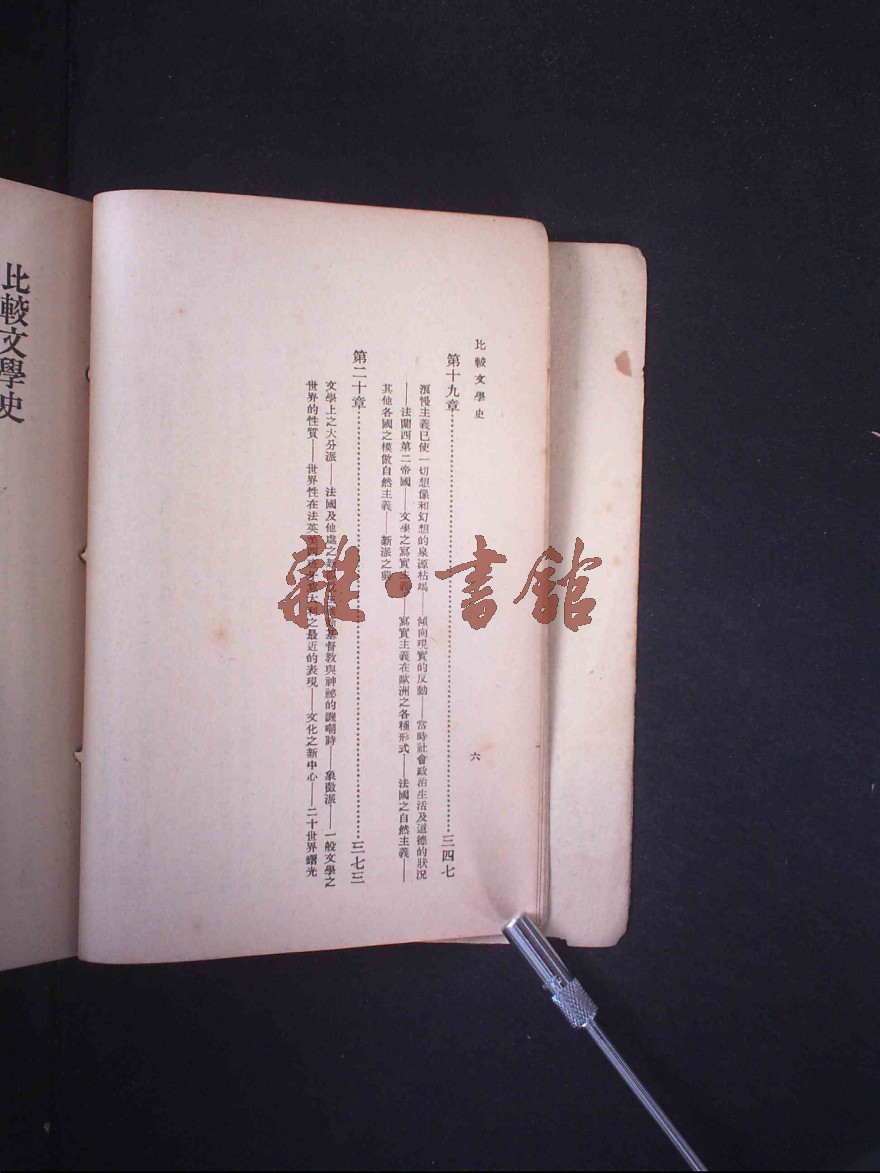 比較文學史
六
第十九章……………三四七
浪慢主義已使一切想像和幻想的泉源枯竭——傾向現實的反動——當時社會政治生活及道德的狀況
——法蘭西第二帝國——文學之寫實主義——寫實主義在歐洲之各種形式——法國之自然主義——
其他各國之模倣自然主義——新派之興
第二十章……………三七三
文學上之大分派——法國及他處之 基督教與神祕的譏嘲詩——象徵派——一般文學之
世界的性質——世界性在法英 之最近的表現——文化之新中心——二十世界曙光
比較文學史
雜·書館